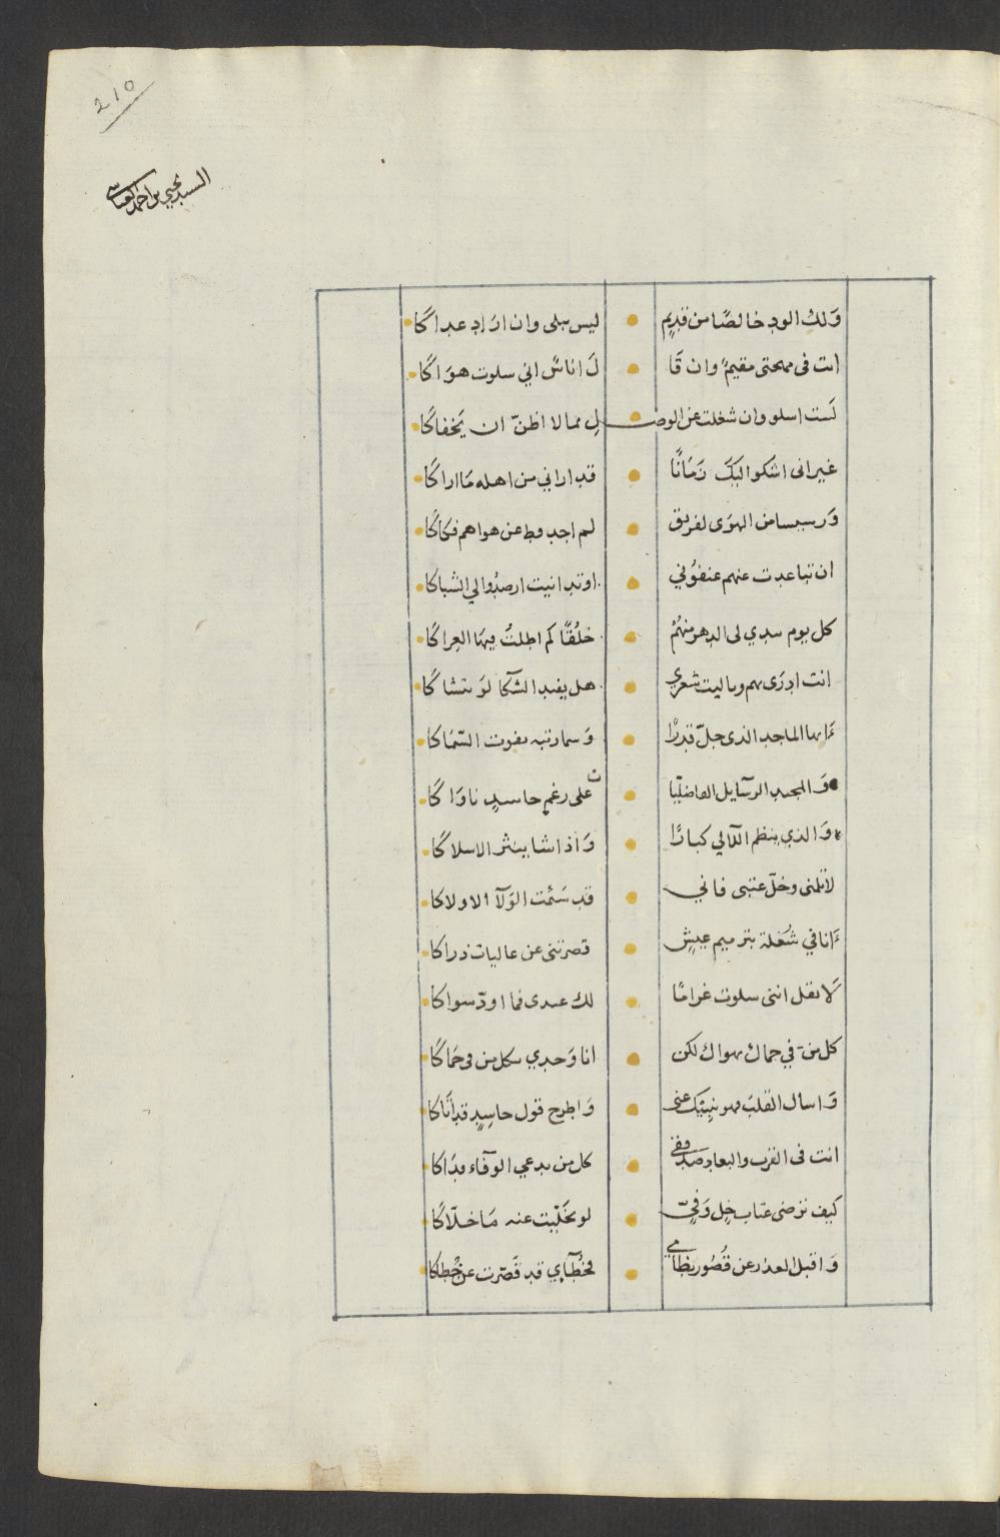 210
السيد يحيى بن احمد العباسي
وَلك الود خالصًا من قديم • ليس يبلى وان اراد عداكَا
انت فى مهجتى مقيمٌ وان قَا • لَ اناسٌ اني سلوت هوَاكَا
لَست اسلو وان شغلت عن الوصـ • ـلِ مما لا اظنّ ان يَخفاكَا
غير انى اشكوا اليكَ زمَانًا • قد اراني من اهله مَا اراكَا
وَرسيسا من الهوَى لفريق • لم اجد قط عن هواهم فكاكَا
ان تباعدت عنهم عنفوُني • او تدانيت ارصدُوا لي الشباكا
كل يوم سيدي لى الدهر منهُمْ • خلُقًا كم اطلتُ فيهَا العِراكَا
انت ادرَى بهم وياليت شعري • هل يفيد الشكا لوَ نتشاكَا
ءَايها الماجد الذى جلّ قدرًا • وَسما رتبه تفوت السّمَاكا
وَالمجيد الرسَآيل الفاضليّا • ت على رغم حاسدٍ ناوَاكَا
وَالذي ينظم اللآلي كبارًا • وَاذا شا ينثر الاسلاكَا
لا تلمنى وخلّ عتبى فاني • قد سَئمت الوَلآ الا ولاكا
ءَانا في شُغلة بترميم عيشٍ • قصرتنى عن عاليات ذراكا
لَا تقل اننى سلوت غرامًا • لك عندى فما اودّ سواكَا
كل من في حماك يهواك لكن • انا وَحدي بكل من فى حمَاكَا
وَاسال القلبَ فهو ينبيكَ عنى • وَاطرح قول حاسِدٍ قد اتَاكا
انت فى القرب والبعاد صَدوقى • كل من يدعي الوفَآء فدَاكا
كيف ترضى عتاب خِلٍ وَفيّ • لو تخَلّيت عنه مَا خلّاكَا
وَاقبل العذر عن قصُور نِظامي • فخطَآبي قد قَصّرت عن خُطاكا